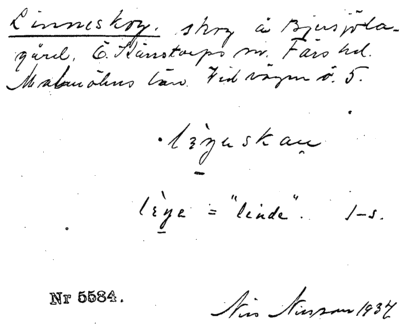 Linneskog. skog å Bjersjöla-
gård. Ö. Kärstorps sn. Färs hd.
Malmöhus län. Ved vägen ö. 5.
lèŋaskau̯
lèŋe = "linde". 1-s.
Nr 5584.
Nils Nilsson 1937